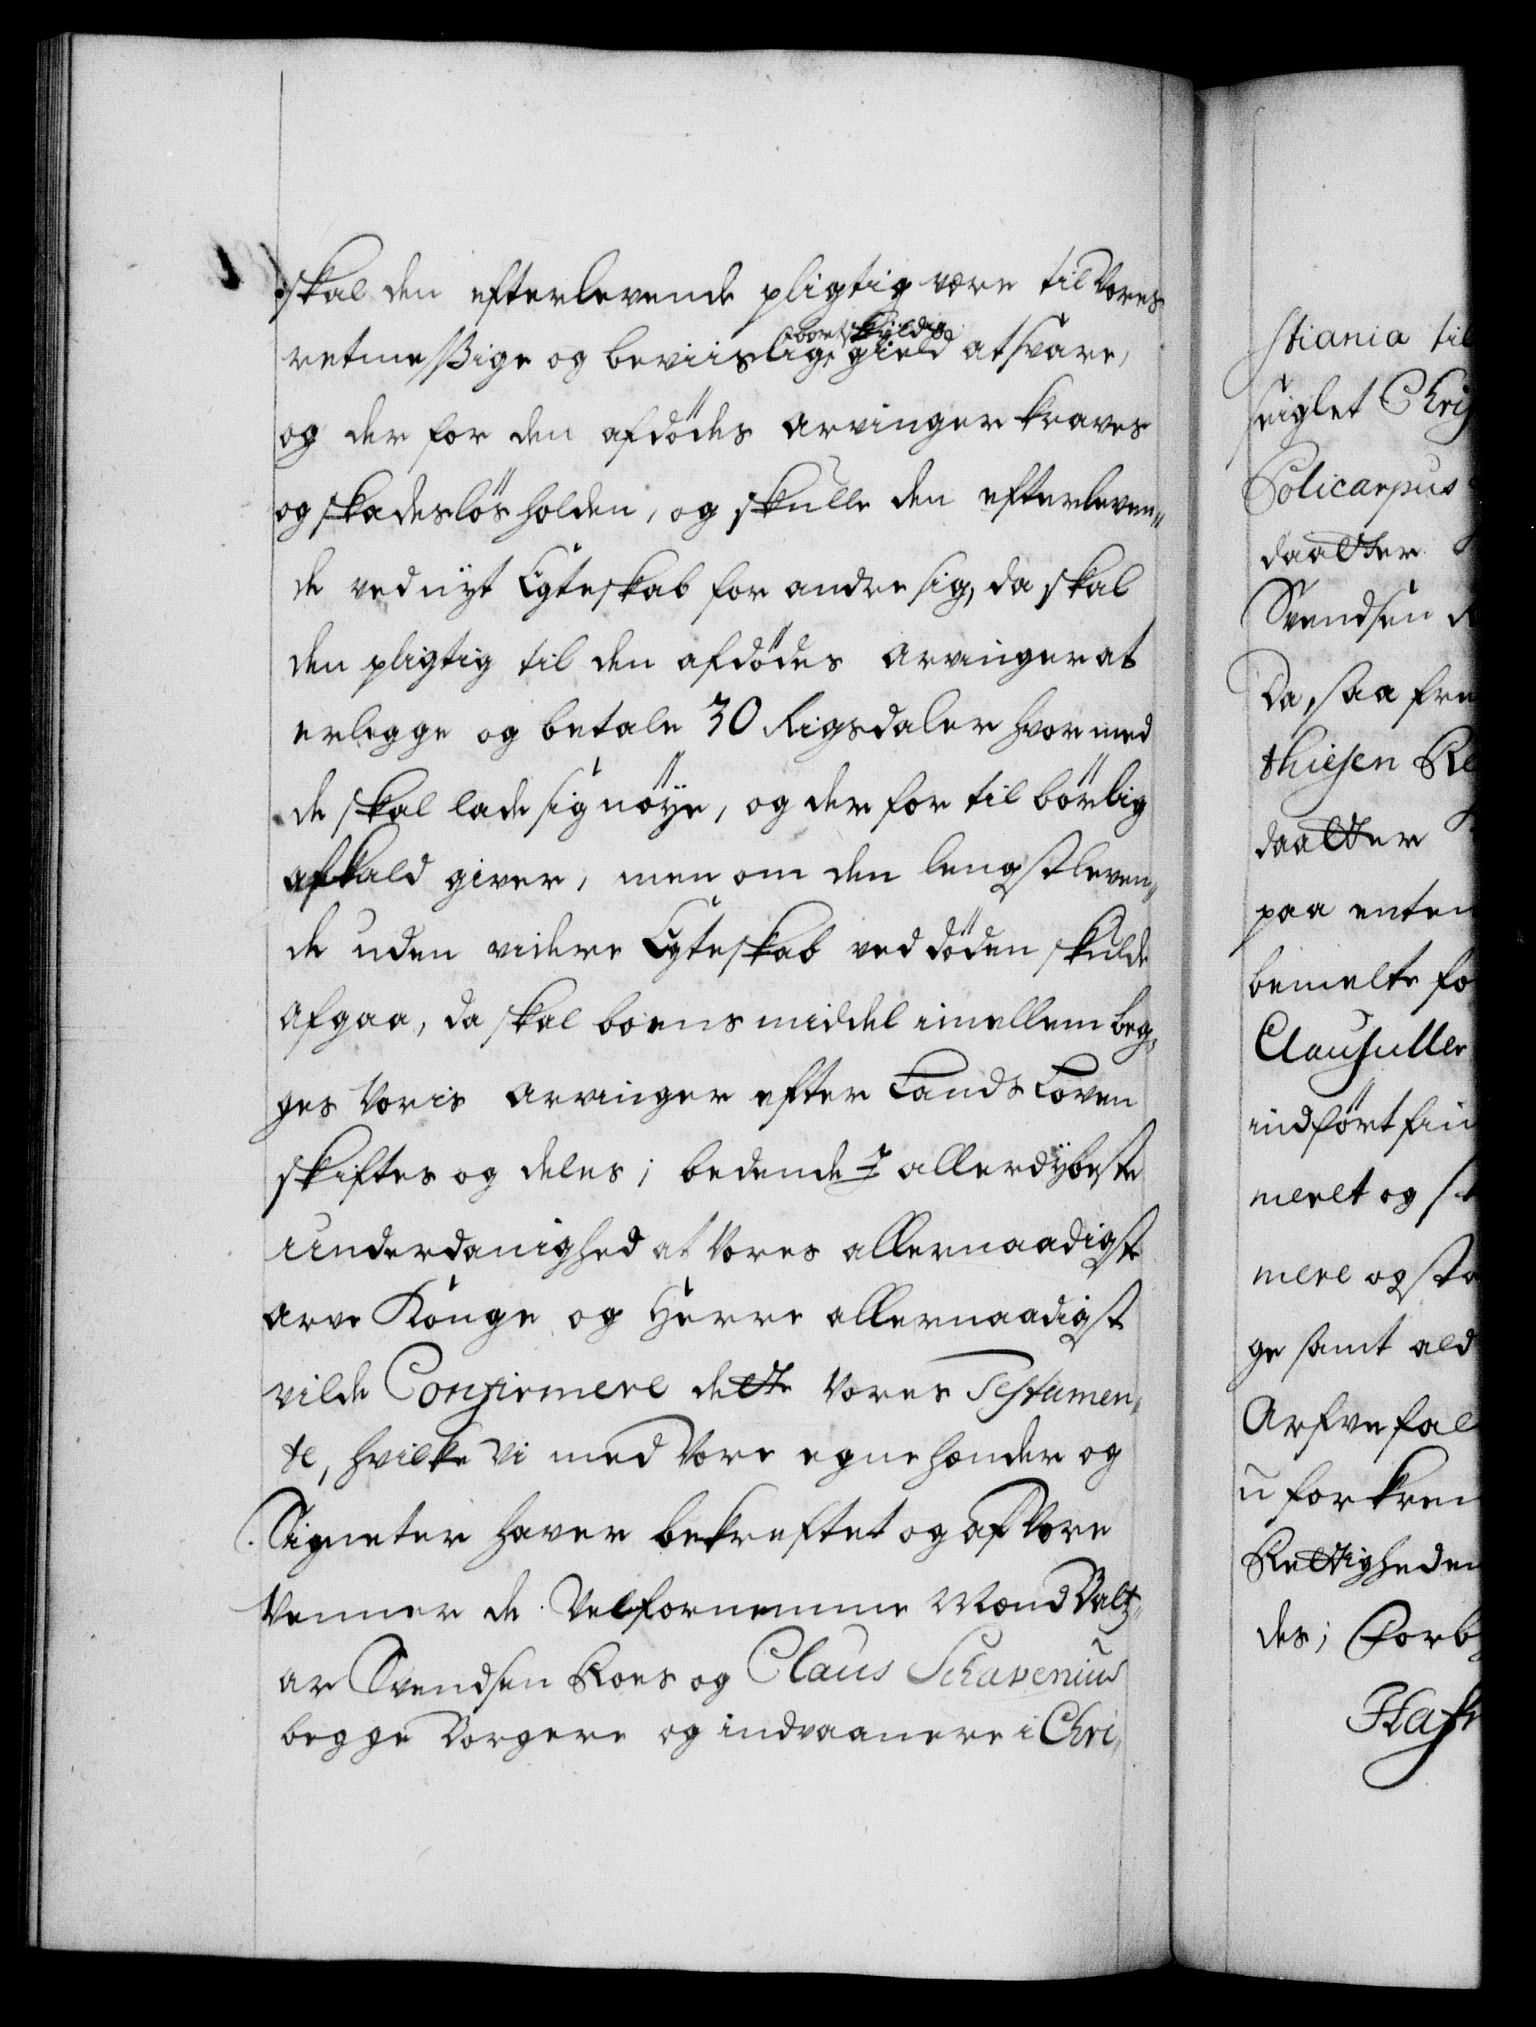 skal den efterlevende pligtig være til Vores
retmessige og beviislige gield at svare,
bortskyldig
og der for den afdødes arvinger kraves
og skadesløs holden, og skulle den efterleven„
de ved nyt Egteskab for andre sig, da skal
den pligtig til den afdødes arvinger at
erlegge og betale 30 Rigsdaler hvor med
de skal lade sig nøye, og der for tilbørlig
afkald giver, men om den lengstleven„
de uden videre Egteskab ved døden skulde
afgaa, da skal boens middel imellem beg„
ges Voris arvinger efter Lands Loven
skiftes og deles; bedende i allerdybeste
underdanighed at Vores allernaadigste
arve Konge og Herre allernaadigst
vilde Confirmere dette Vores Testamen„
te, hvilke Vi med Vore egne hænder og
Signeter haver bekreftet og af Vore
Venner de Velfornemme Mænd Baltz„
ar Svendsen Roes og Claus Schavenius
begge Borgere og indvaanere i Chri„
stiania til
seiglet Chri
Policarpus
daatter
Svendsen
Da, saa fre
thiesen
daatter
paa enten
bemelte fo
Clausuller
indført fin
meret og st
mere og sta
ge samt ald
Arfve fal
uforkren
Rettigheden
des; Forb
Hafn